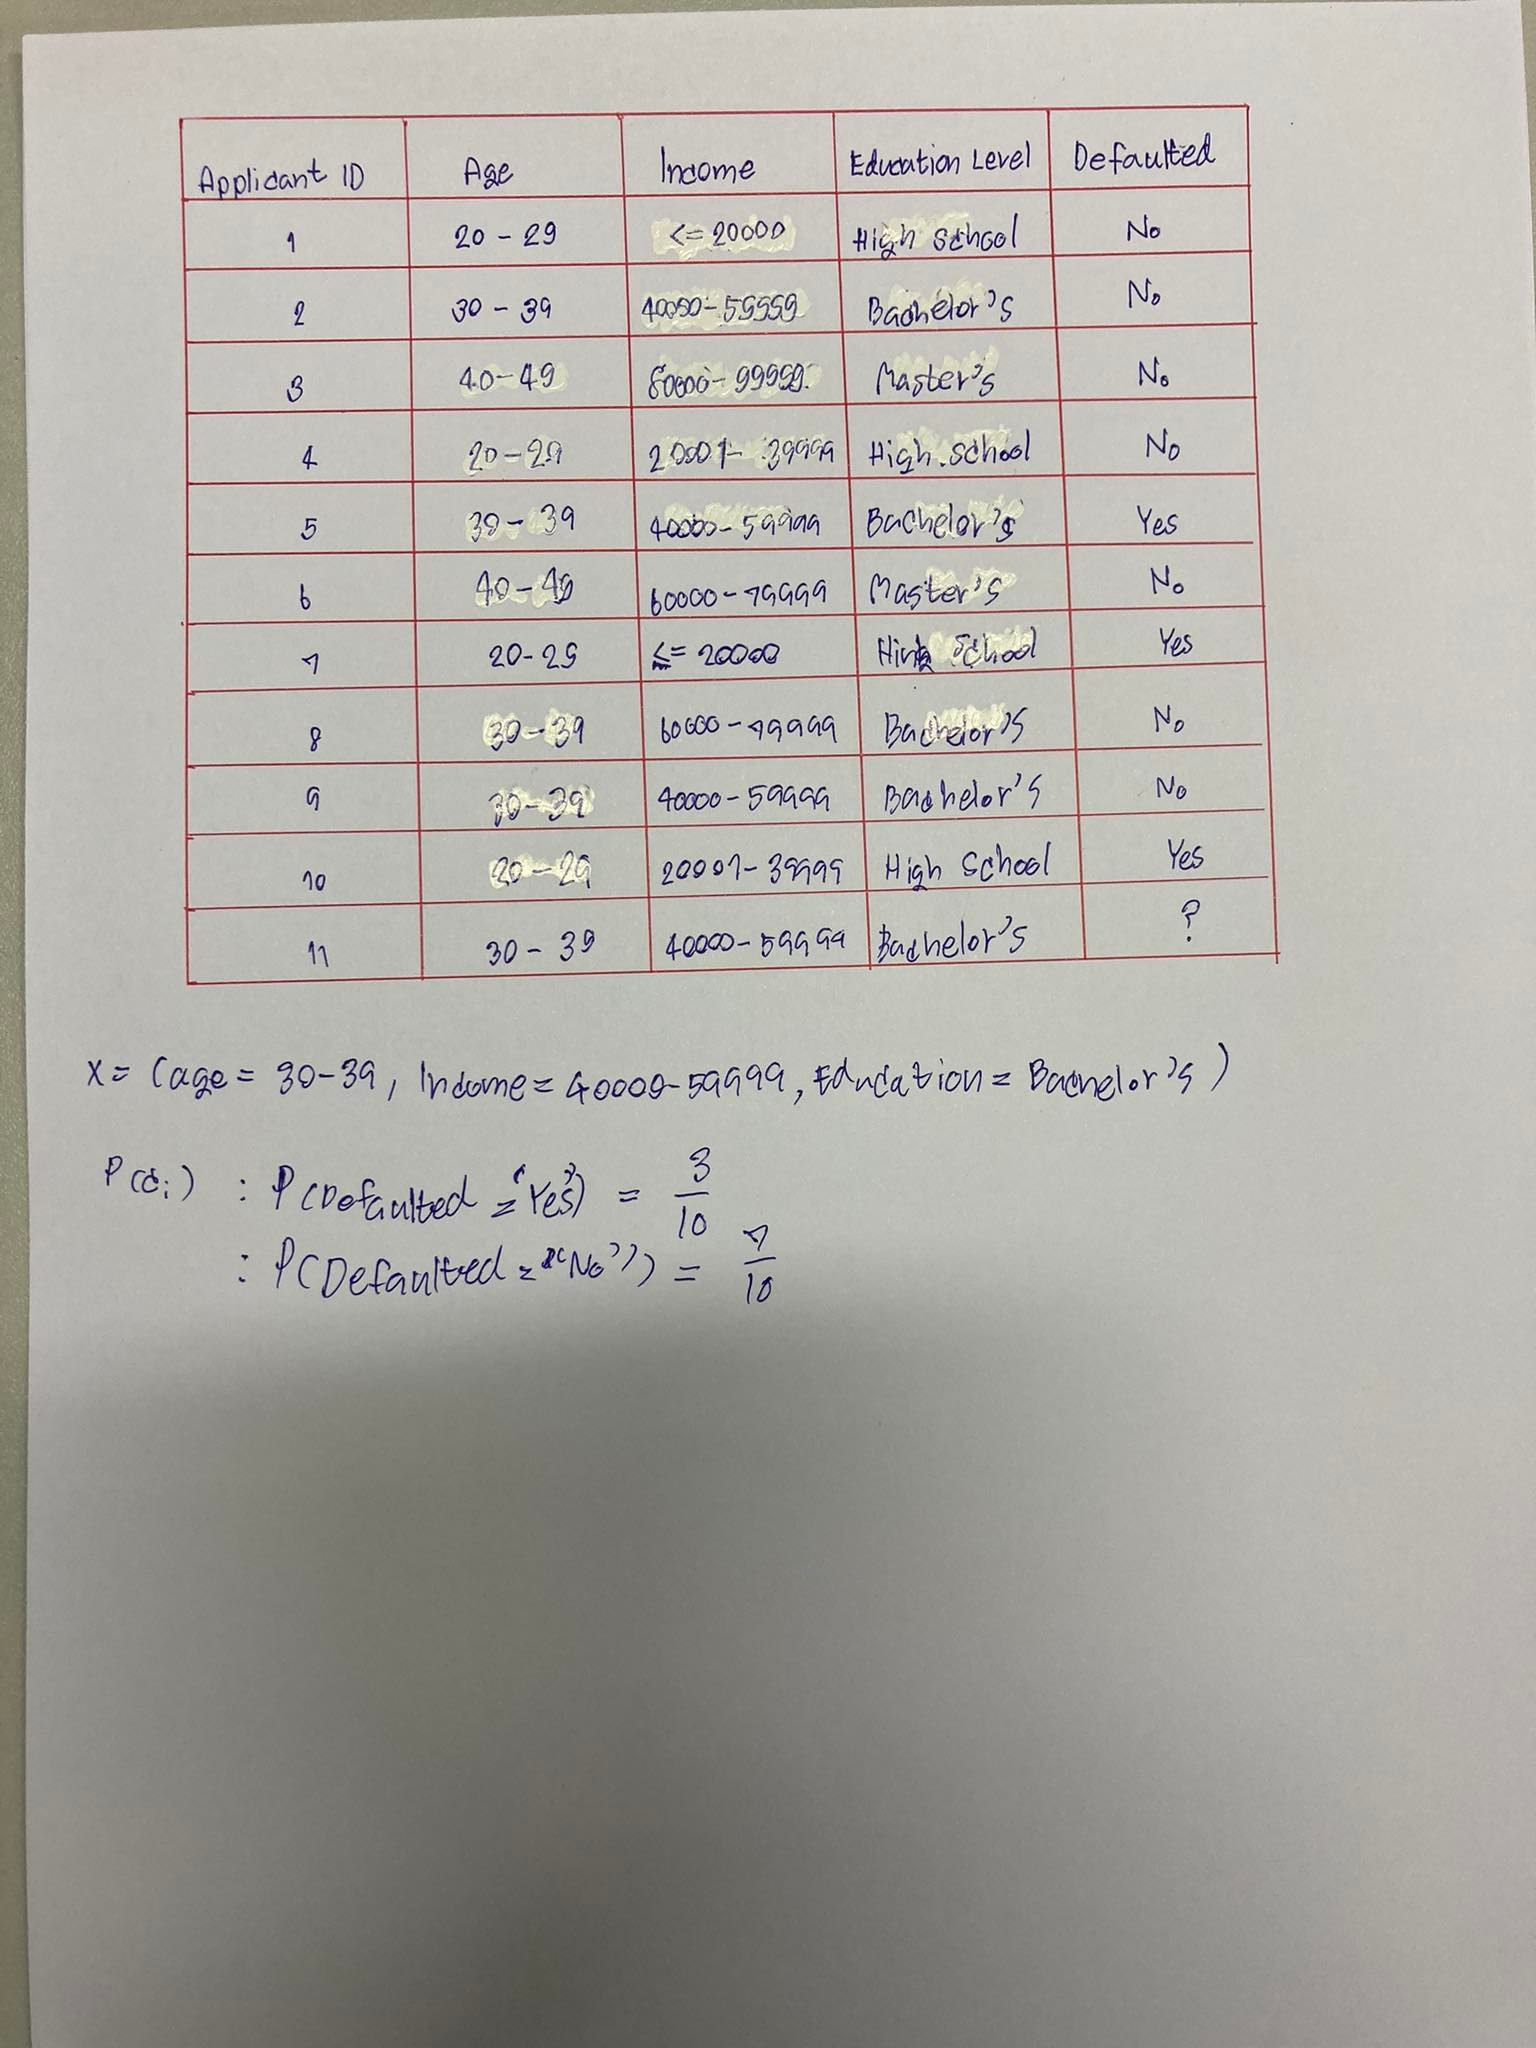 Applicant ID Age Income Education Level Defaulted
1 20 - 29 <= 20000 High School No
2 30 - 39 40000-59999 Bachelor's No
3 40-49 80000-99999 Master's No
4 20-29 20001-39999 High School No
5 30-39 40000-59999 Bachelor's Yes
6 40-49 60000-79999 Master's No
7 20-29 <= 20000 High School Yes
8 30-39 60000-79999 Bachelor's No
9 30-39 40000-59999 Bachelor's No
10 20-29 20001-39999 High School Yes
11 30 - 39 40000-59999 Bachelor's ?
X = (age = 30-39, Income = 40000-59999, Education = Bachelor's)
P(Ci) : P(Defaulted = 'Yes') = 3/10
: P(Defaulted = "No") = 7/10